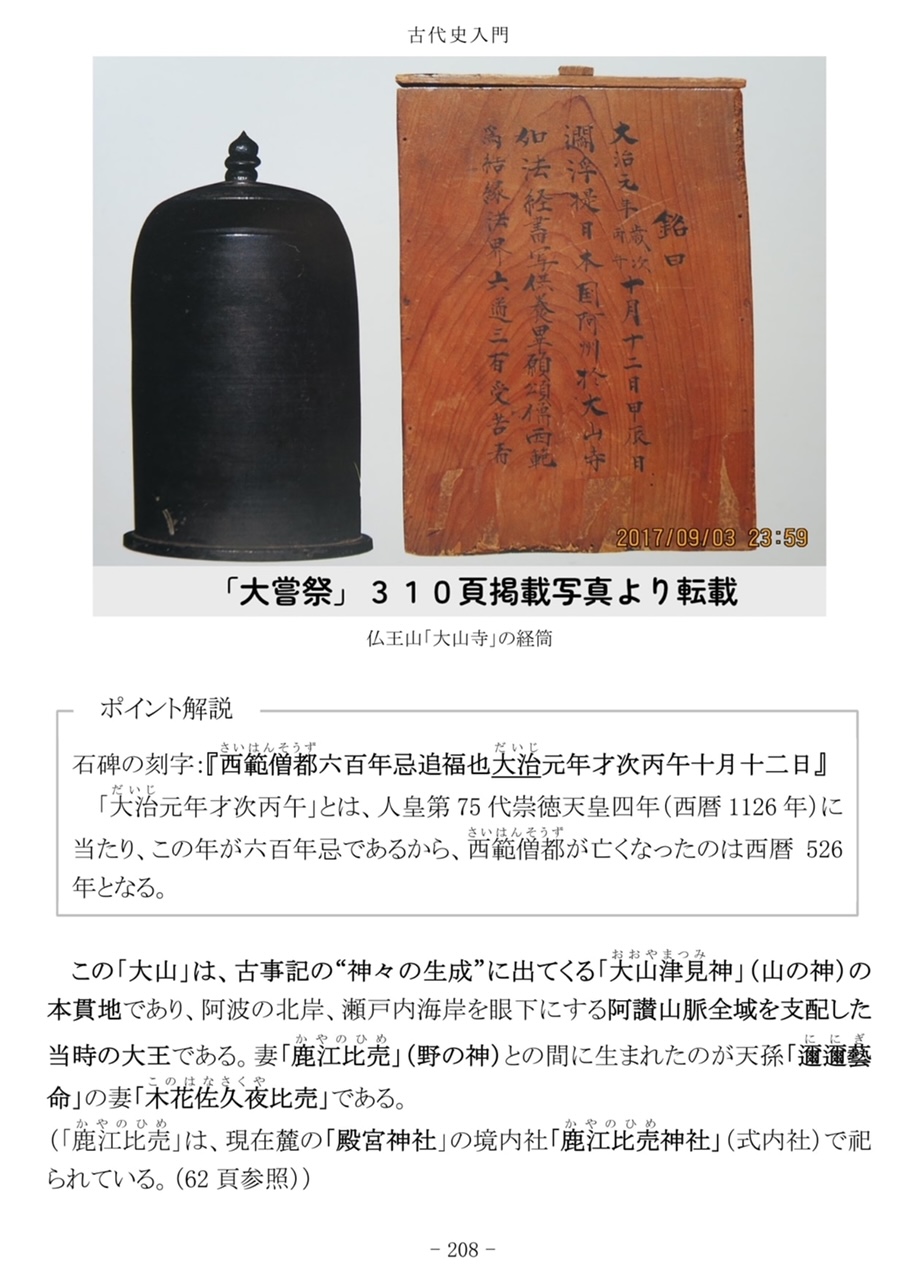 古代史入門
銘曰
大治元年歳次丙午十月十二日甲辰日
閻浮提日本国阿州於大山寺
如法経書写供養畢願頌僧西範
為結縁法界六道三有受苦者
2017/09/03 23:59
「大嘗祭」３１０頁掲載写真より転載
仏王山「大山寺」の経筒
ポイント解説
さいはんそうず だいじ
石碑の刻字:『西範僧都六百年忌追福也大治元年才次丙午十月十二日』
だいじ
「大治元年才次丙午」とは、人皇第 75 代崇徳天皇四年（西暦 1126 年）に
さいはんそうず
当たり、この年が六百年忌であるから、西範僧都が亡くなったのは西暦 526
年となる。
おおやまつみ
この「大山」は、古事記の“神々の生成”に出てくる「大山津見神」（山の神）の
本貫地であり、阿波の北岸、瀬戸内海岸を眼下にする阿讃山脈全域を支配した
かやのひめ ににぎ
当時の大王である。妻「鹿江比売」（野の神）との間に生まれたのが天孫「邇邇藝
このはなさくや
命」の妻「木花佐久夜比売」である。
かやのひめ かやのひめ
（「鹿江比売」は、現在麓の「殿宮神社」の境内社「鹿江比売神社」（式内社）で祀
られている。（62 頁参照））
- 208 -